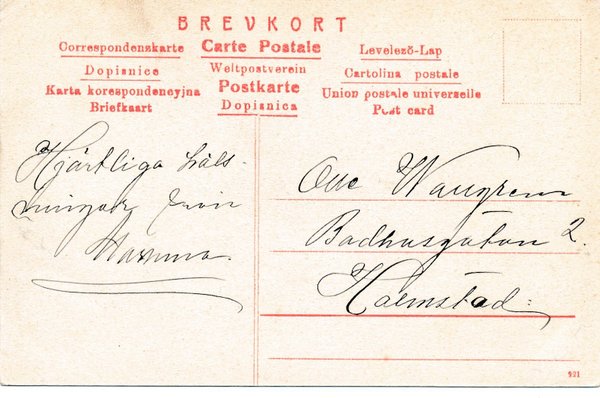 BREVKORT
Correspondenzkarte Carte Postale Levelező-Lap
Dopisnice Weltpostverein Cartolina postale
Karta korespondencyjna Postkarte Union postale universelle
Briefkaart Dopisnica Post card
Hjärtliga häls-
ningar från
Mamma.
Otto Wangren
Badhusgatan 2.
Halmstad:
921